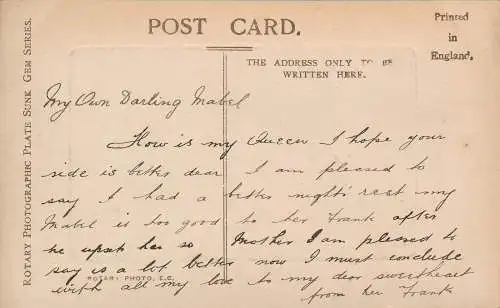 POST CARD.
Printed
in
England.
THE ADDRESS ONLY TO BE
WRITTEN HERE.
ROTARY PHOTOGRAPHIC PLATE SUNK GEM SERIES.
My Own Darling Mabel
How is my Queen I hope your
side is better dear I am pleased to
say I had a better night's rest my
Mabel is too good to her Frank after
he upset her so Mother I am pleased to
say is a lot better now I must conclude
with all my love to my dear sweetheart
from her Frank
ROTARY PHOTO. E.C.